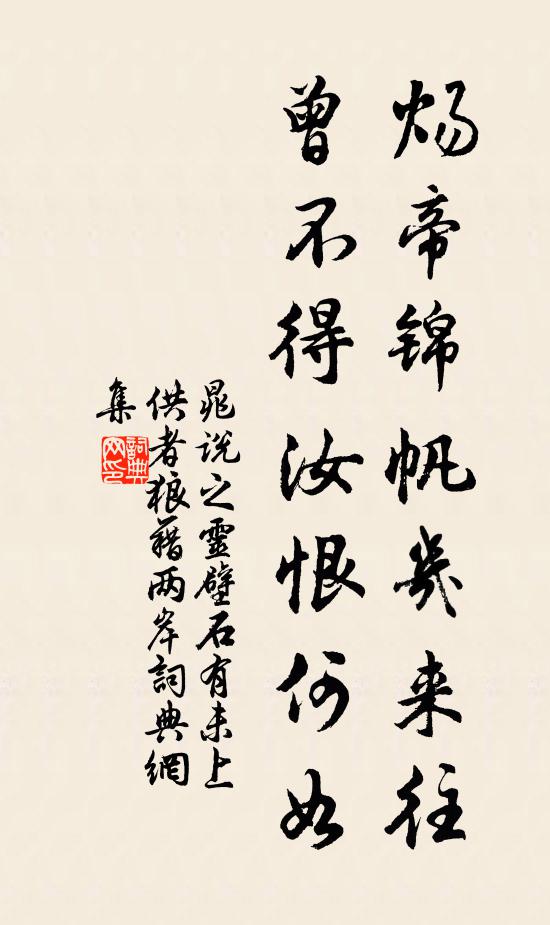 炀帝锦帆几来往
曾不得汝恨何如
晁说之靈壁石有未上
供者狼藉两岸詞典網
集
詞典網